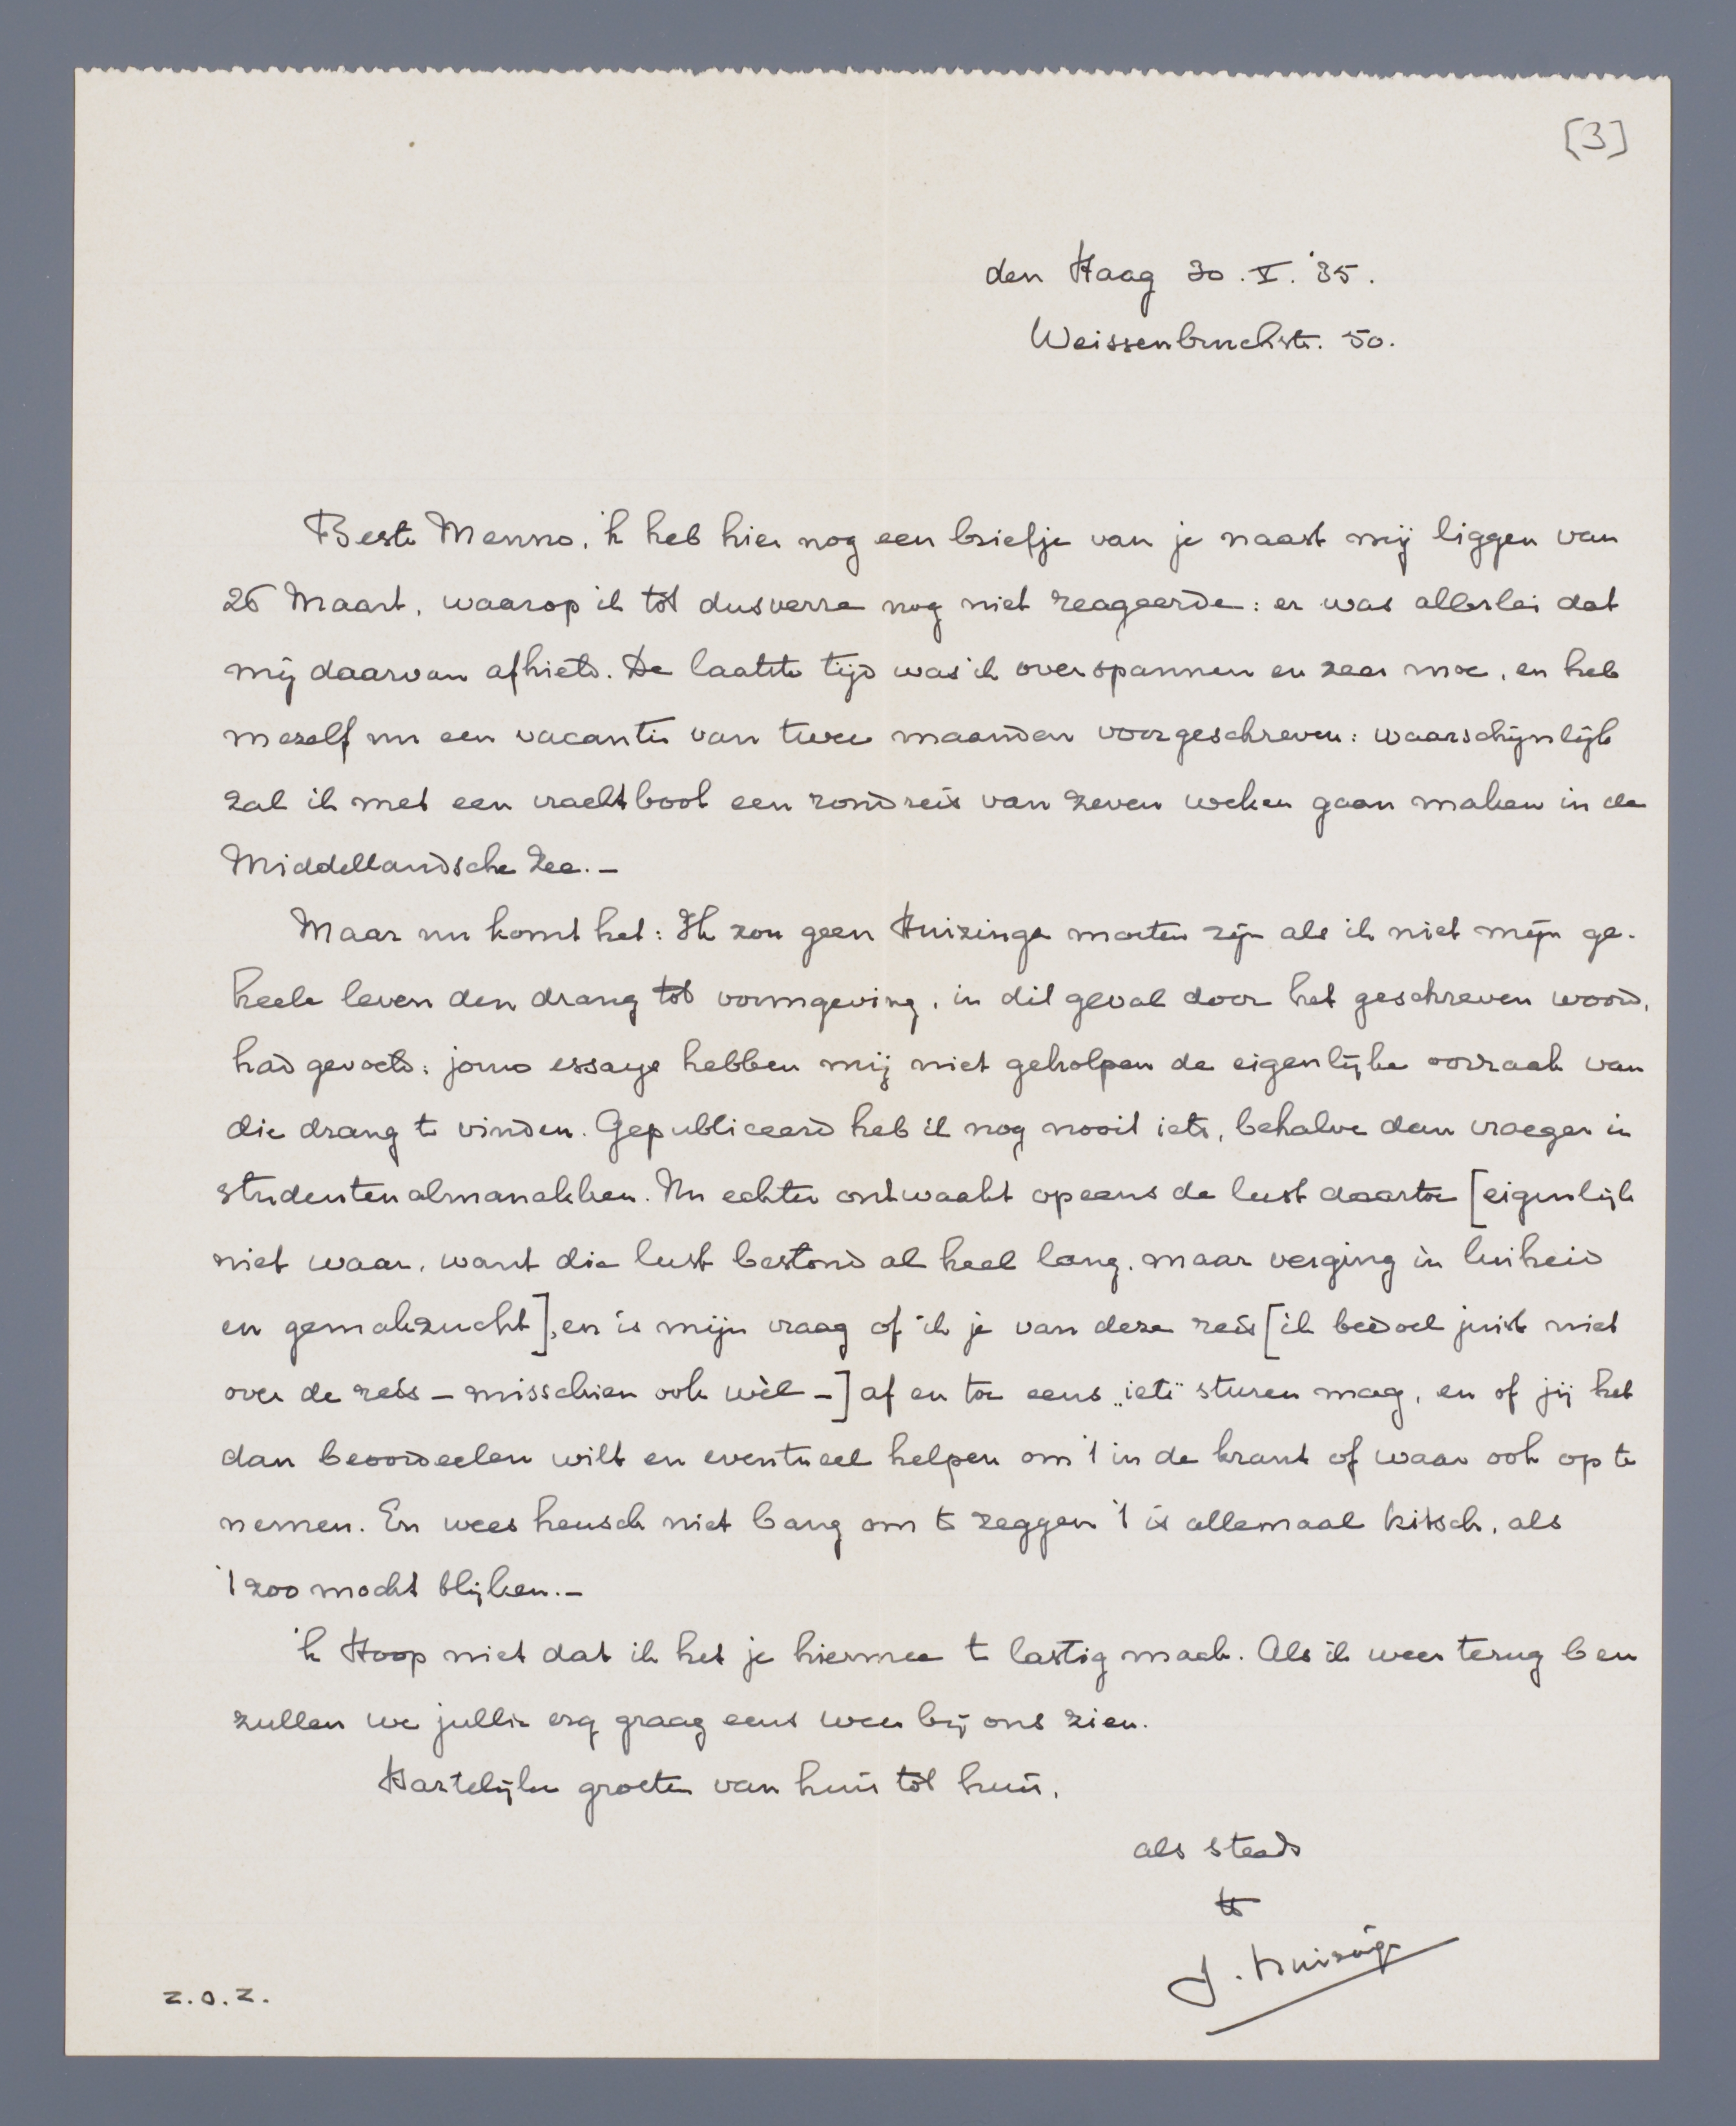 [3]
den Haag 30.V.'35.
Weissenbruchstr. 50.
Beste Menno, 'k heb hier nog een briefje van je naast mij liggen van
26 Maart, waarop ik tot dusverre nog niet reageerde: er was allerlei dat
mij daarvan afhield. De laatste tijd was ik overspannen en zeer moe, en heb
mezelf nu een vacantie van twee maanden voorgeschreven: waarschijnlijk
zal ik met een vrachtboot een rondreis van zeven weken gaan maken in de
Middellandsche Zee.–
Maar nu komt het: Ik zou geen Huizinga moeten zijn als ik niet mijn ge-
heele leven den drang tot vormgeving, in dit geval door het geschreven woord,
had gevoeld: jouw essays hebben mij niet geholpen de eigenlijke oorzaak van
die drang te vinden. Gepubliceerd heb ik nog nooit iets, behalve dan vroeger in
studentenalmanakken. Nu echter ontwaakt opeens de lust daartoe [eigenlijk
niet waar, want die lust bestond al heel lang, maar verging in luiheid
en gemakzucht], en is mijn vraag of ik je van deze reis [ik bedoel juist niet
over de reis – misschien ook wèl –] af en toe eens „iets" sturen mag, en of jij het
dan beoordeelen wilt en eventueel helpen om 't in de krant of waar ook op te
nemen. En wees heusch niet bang om te zeggen 't is allemaal kitsch, als
't zoo mocht blijken.–
'k Hoop niet dat ik het je hiermee te lastig maak. Als ik weer terug ben
zullen we jullie erg graag eens weer bij ons zien.
Hartelijke groeten van huis tot huis,
als steeds
tt
J. Huizinga
z.o.z.